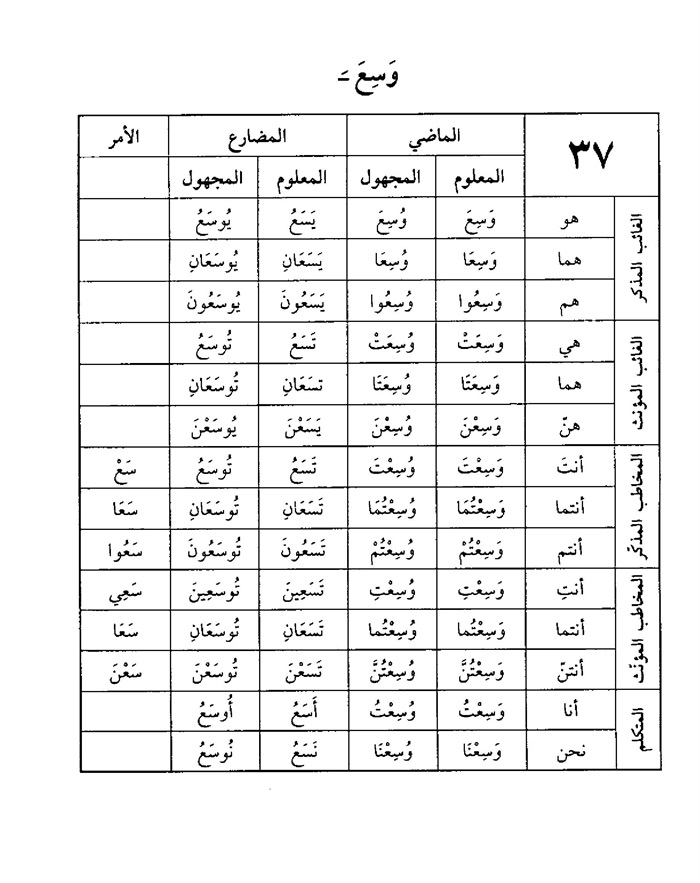 وَسِعَ ـَ
٣٧ الماضي المضارع الأمر
المعلوم المجهول المعلوم المجهول
الغائب المذكر
هو وَسِعَ وُسِعَ يَسَعُ يُوسَعُ
هما وَسِعَا وُسِعَا يَسَعَانِ يُوسَعَانِ
هم وَسِعُوا وُسِعُوا يَسَعُونَ يُوسَعُونَ
الغائب المؤنث
هي وَسِعَتْ وُسِعَتْ تَسَعُ تُوسَعُ
هما وَسِعَتَا وُسِعَتَا تسَعَانِ تُوسَعَانِ
هنّ وَسِعْنَ وُسِعْنَ يَسَعْنَ يُوسَعْنَ
المخاطب المذكّر
أنتَ وَسِعْتَ وُسِعْتَ تَسَعُ تُوسَعُ سَعْ
أنتما وَسِعْتُمَا وُسِعْتُمَا تَسَعَانِ تُوسَعَانِ سَعَا
أنتم وَسِعْتُمْ وُسِعْتُمْ تَسَعُونَ تُوسَعُونَ سَعُوا
المخاطب المؤنّث
أنتِ وَسِعْتِ وُسِعْتِ تَسَعِينَ تُوسَعِينَ سَعِي
أنتما وَسِعْتُما وُسِعْتُما تَسَعَانِ تُوسَعَانِ سَعَا
أنتنّ وَسِعْتُنَّ وُسِعْتُنَّ تَسَعْنَ تُوسَعْنَ سَعْنَ
المتكلم
أنا وَسِعْتُ وُسِعْتُ أَسَعُ أُوسَعُ
نحن وَسِعْنَا وُسِعْنَا نَسَعُ نُوسَعُ